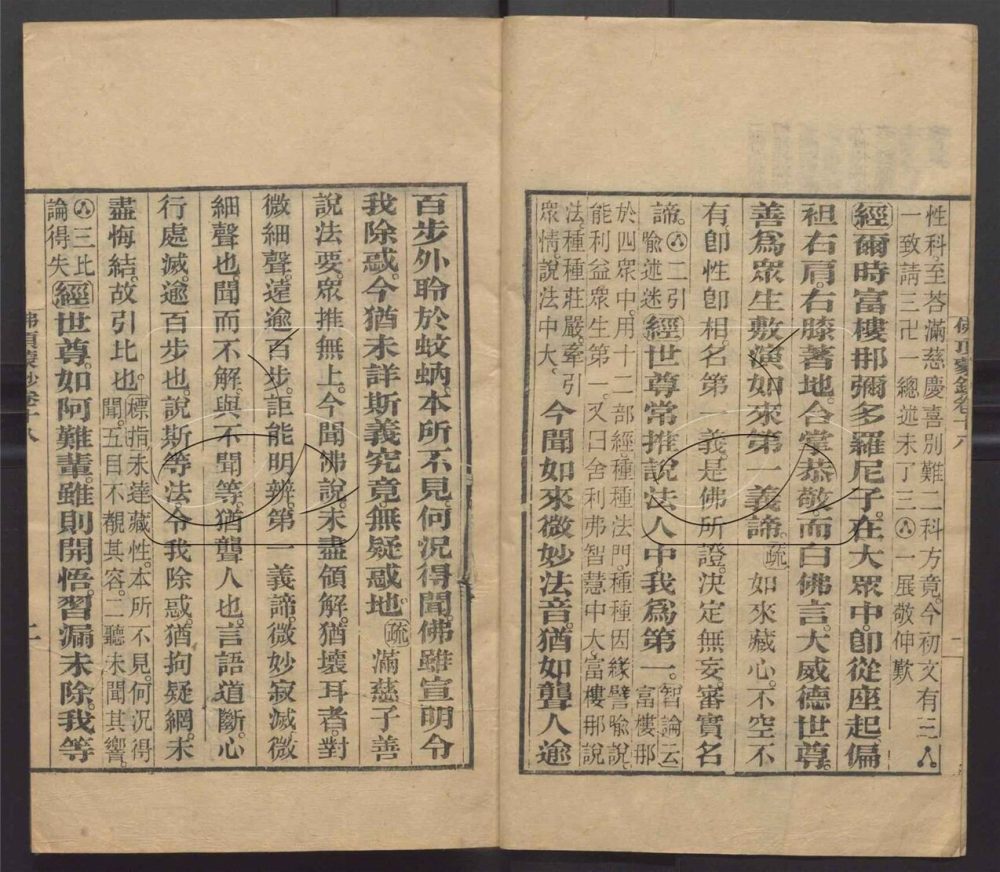 性科至荅滿慈慶喜別難二科方竟今初文有三㊇
一致請三卍總述未了三㊇一展敬仰歎
㊣經爾時富樓那彌多羅尼子。在大眾中。卽從座起。偏
袒右肩。右膝著地。合掌恭敬而白佛言。大威德世尊。
善為眾生敷演如來第一義諦。疏如來藏心。不空不
有。卽性卽相。名第一義。是佛所證。決定無妄。審實名
諦。㊇二引
喻述迷經世尊常推說法人中。我為第一。智論云富樓那
於四眾中。用十二部經。種種法門。種種因緣譬喻說
能利益眾生第一。又曰舍利弗智慧中大。富樓那說
法。種種莊嚴。牽引
眾情。說法中大。今聞如來微妙法音。猶如聾人。逾
百步外。聆於蚊蚋。本所不見。何況得聞。佛雖宣明。令
我除惑。今猶未詳斯義究竟。無疑惑地。疏滿慈子善
說法要。眾推無上。今聞佛說。未盡領解。猶壞耳者。對
微細聲。遠逾百步。詎能明辨。第一義諦。微妙寂滅。微
細聲也。聞而不解。與不聞等。猶聾人也。言語道斷。心
行處滅。逾百步也。說斯等法。令我除惑。猶拘疑網。未
盡悔結。故引比也。標指未達藏性。本所不見。何況得
聞。五目不覩其容。二聽未聞其響。
㊇三比
論得失經世尊。如阿難輩。雖則開悟。習漏未除。我等
佛頂蒙鈔卷十八